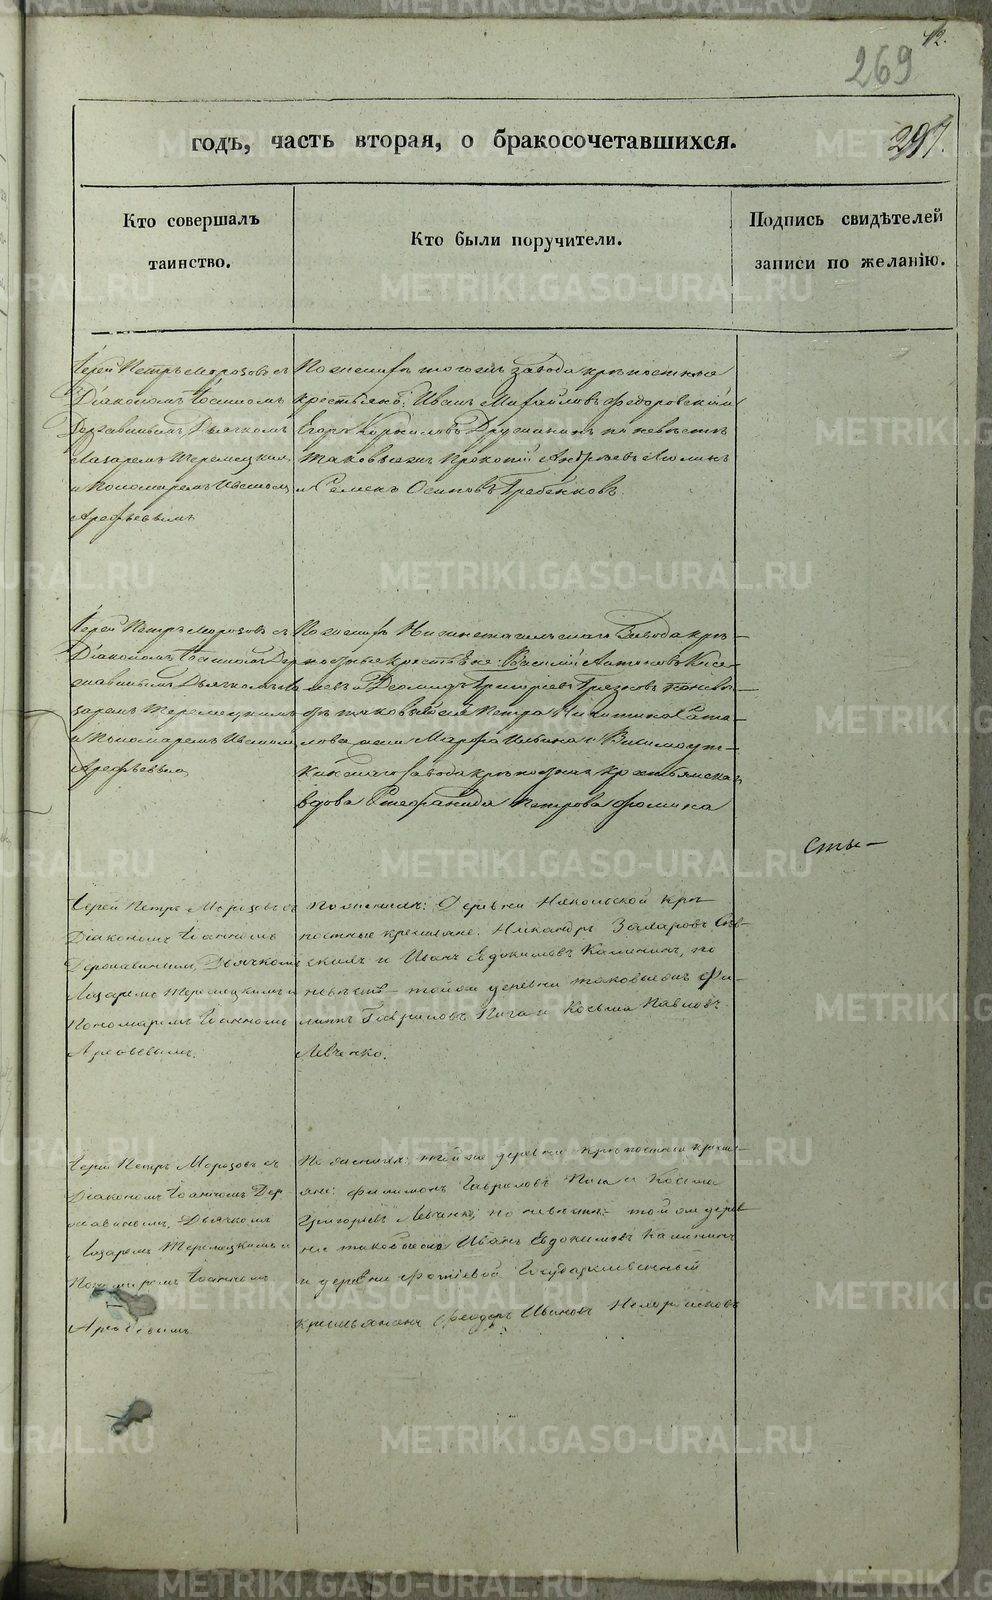 42.
269
годъ, часть вторая, о бракосочетавшихся.
297.
Кто совершалъ
таинство.
Кто были поручители.
Подпись свидѣтелей
записи по желанію.
Іерей Петръ Морозовъ съ
Діакономъ Іоанномъ
Державинымъ, Дьячкомъ
Лазаремъ
и Пономаремъ Иваномъ
Арефьевымъ
По женихѣ того жъ завода крѣпостные
крестьяне: Иванъ Михайловъ Федоровскій и
Егоръ Корниловъ Дружининъ по невѣстѣ
таковыежъ Прокопій Андреевъ
и Семенъ Осиповъ Гребенковъ.
Іерей Петръ Морозовъ съ
Діакономъ Іоанномъ Дер
жавинымъ Дьячкомъ Ла
заремъ
и Пономаремъ Иваномъ
Арефьевымъ
По женихѣ Нижнетагильскаго Завода крѣ-
постные крестьяне: Василій Антоновъ Кисе-
левъ и Діомидъ Григорьевъ Грязновъ по невѣ-
стѣ таковыежъ Петра Никитина
лова жена Марфа Ильина и
завода крѣпостная крестьянская
вдова Стефанида Петрова Фомина
Сты-
Іерей Петръ Морозовъ съ
Діакономъ Іоанномъ
Державинымъ, Дьячкомъ
Лазаремъ и
Пономаремъ Іоанномъ
Арефьевымъ.
По женихѣ: Деревни Никольской крѣ
постные крестьяне. Никандръ Захаровъ
и Иванъ Евдокимовъ Калининъ, по
невѣстѣ - той же деревни таковыежъ Фи-
липпъ Гавриловъ и Косьма Павловъ
Левченко.
Іерей Петръ Морозовъ съ
Діакономъ Іоанномъ Дер
жавинымъ, Дьячкомъ
Лазаремъ и
Пономаремъ Іоанномъ
Арефьевымъ
По женихѣ: той же деревни крѣпостные кресть-
яне: Филимонъ Гавриловъ и Косьма
Григорьевъ Левченко, по невѣстѣ - той же дерев
ни таковыежъ Иванъ Евдокимовъ Калининъ
и деревни Фотѣевой Государственный
крестьянинъ Феодоръ Ивановъ
METRIKI.GASO-URAL.RU